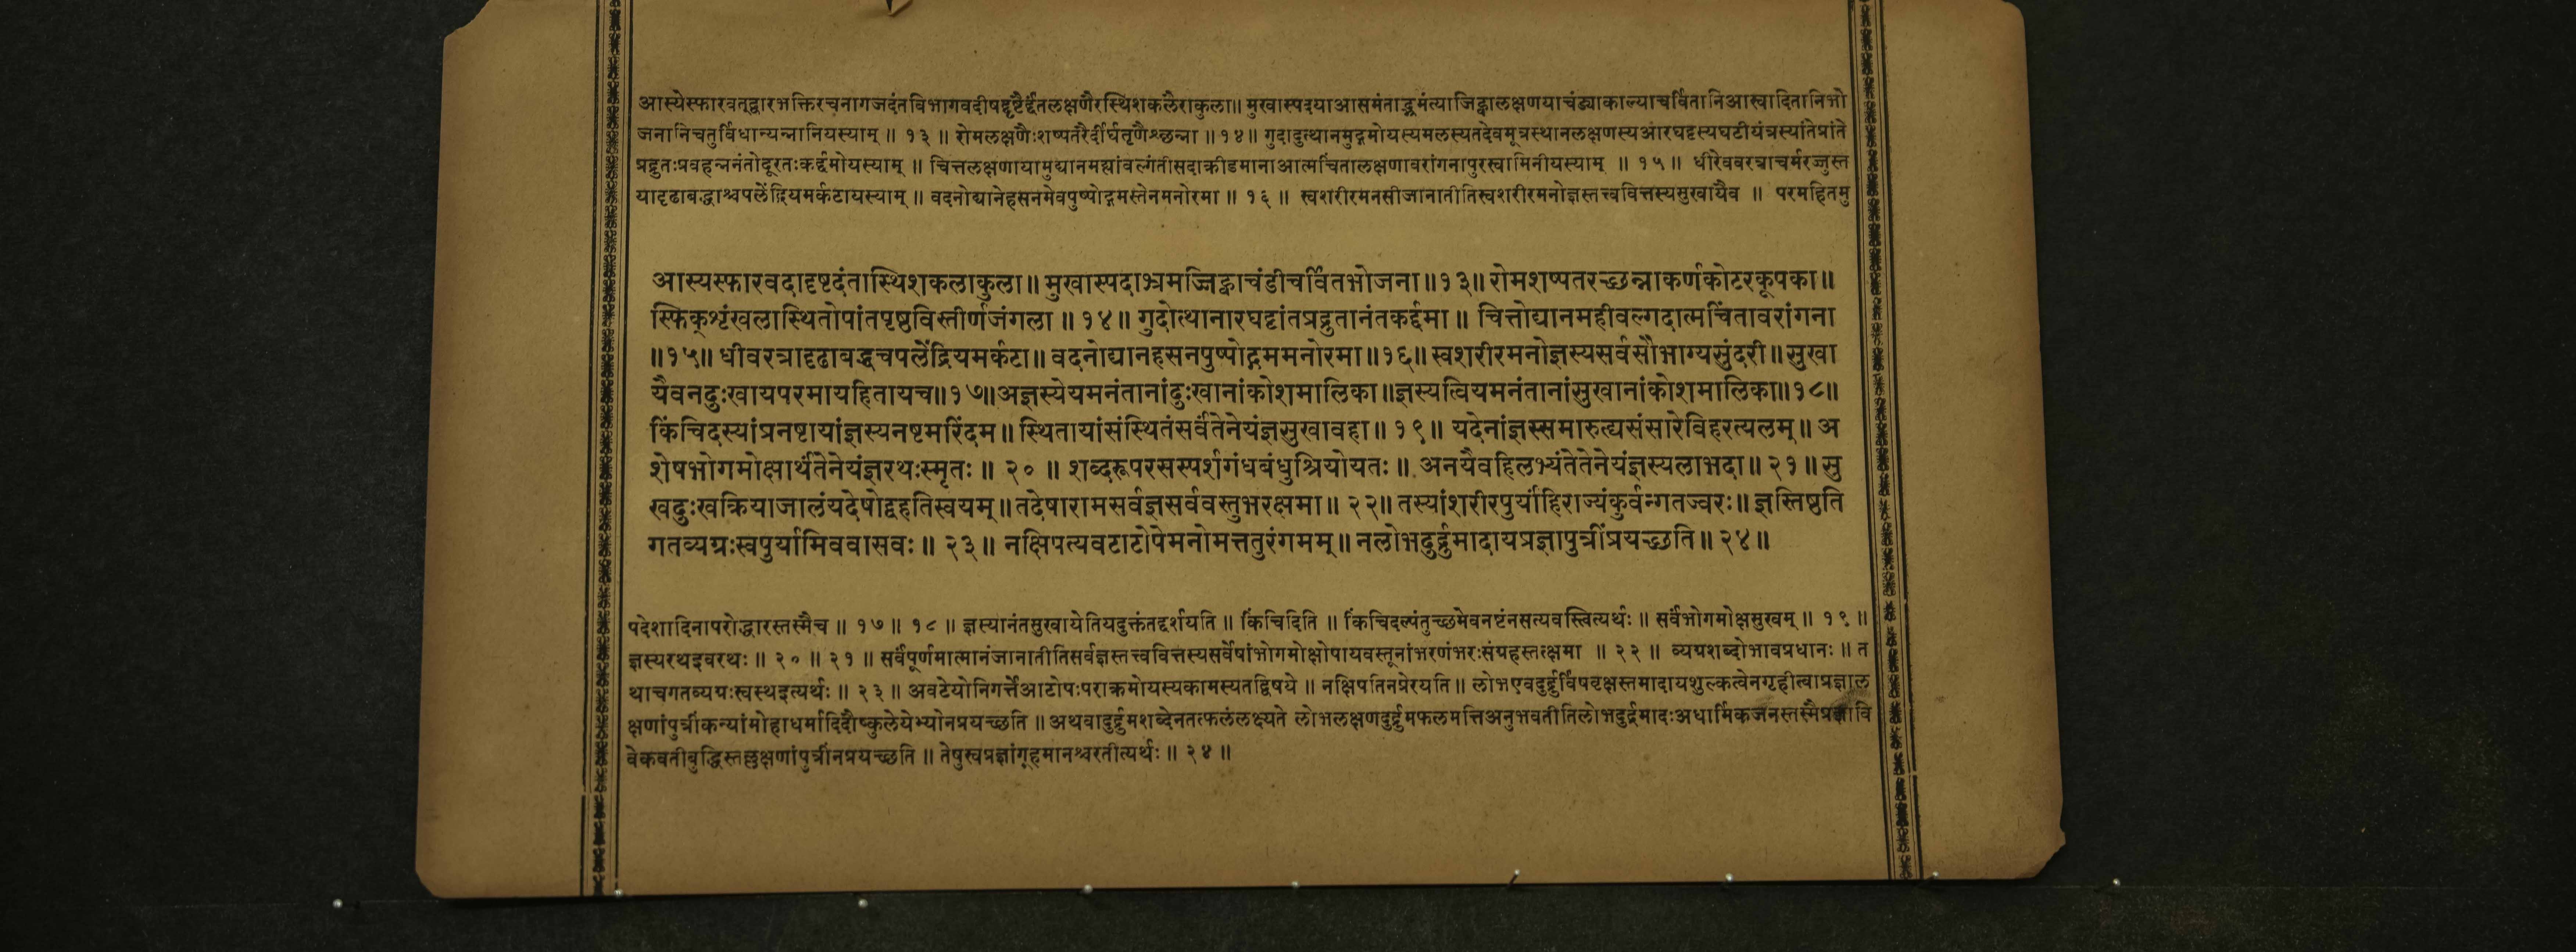 आस्येस्फारवत्द्वारभक्तिरचनागजदंतविभागवदीषद्दृष्टैर्द्दंतलक्षणैरस्थिशकलैराकुला॥ मुखास्पदयाआसमंताद्भ्रमंत्याजिह्वालक्षणयाचंड्याकाल्याचर्वितानिआस्वादितानिभो
जनानिचतुर्विधान्यन्नानियस्याम् ॥ १३ ॥ रोमलक्षणैःशष्पतरैर्दीर्घतृणैश्छन्ना ॥१४॥ गुदादुत्थानमुद्गमोयस्यमलस्यतदेवमूत्रस्थानलक्षणस्यआरघट्टस्यघटीयंत्रस्यांतेप्रांते
प्रद्रुतःप्रवहन्ननंतोदूरतःकर्द्दमोयस्याम् ॥ चित्तलक्षणायामुद्यानमह्यांवल्गंतीसदाक्रीडमानाआत्मचिंतालक्षणावरांगनापुरस्वामिनीयस्याम् ॥ १५ ॥ धीरेववरत्राचर्मरज्जुस्त
यादृढाबद्धाश्चपलेंद्रियमर्कटायस्याम् ॥ वदनोद्यानेहसनमेवपुष्पोद्गमस्तेनमनोरमा ॥ १६ ॥ स्वशरीरमनसीजानातीतिस्वशरीरमनोज्ञस्तत्त्ववित्तस्यसुखायैव ॥ परमहितमु
आस्यस्फारवदादृष्टदंतास्थिशकलाकुला॥ मुखास्पदाभ्रमज्जिह्वाचंडीचर्वितभोजना॥१३॥ रोमशष्पतरच्छन्नाकर्णकोटरकूपका॥
स्फिक्शृंखलास्थितोपांतपृष्ठविस्तीर्णजंगला ॥ १४॥ गुदोत्थानारघट्टांतप्रद्रुतानंतकर्द्दमा ॥ चित्तोद्यानमहीवल्गदात्मचिंतावरांगना
॥१५॥ धीवरत्रादृढाबद्धचपलेंद्रियमर्कटा॥ वदनोद्यानहसनपुष्पोद्गममनोरमा॥१६॥ स्वशरीरमनोज्ञस्यसर्वसौभाग्यसुंदरी॥ सुखा
यैवनदुःखायपरमायहितायच॥१७॥अज्ञस्येयमनंतानांदुःखानांकोशमालिका॥ज्ञस्यत्वियमनंतानांसुखानांकोशमालिका॥१८॥
किंचिदस्यांप्रनष्टायांज्ञस्यनष्टमरिंदम॥ स्थितायांसंस्थितंसर्वंतेनेयंज्ञसुखावहा॥ १९॥ यदेनांज्ञस्समारुत्द्यसंसारेविहरत्यलम्॥ अ
शेषभोगमोक्षार्थंतेनेयंज्ञरथःस्मृतः ॥ २० ॥ शब्दरूपरसस्पर्शगंधबंधुश्रियोयतः॥ अनयैवहिलभ्यंतेतेनेयंज्ञस्यलाभदा॥ २१॥ सु
खदुःखक्रियाजालंयदेषोद्वहतिस्वयम्॥ तदेषारामसर्वज्ञसर्ववस्तुभरक्षमा॥ २२॥ तस्यांशरीरपुर्यांहिराज्यंकुर्वन्गतज्वरः॥ ज्ञस्तिष्ठति
गतव्यग्रःस्वपुर्यामिववासवः ॥ २३॥ नक्षिपत्यवटाटोपेमनोमत्ततुरंगमम्॥ नलोभदुर्द्रुमादायप्रज्ञापुत्रींप्रयच्छति॥ २४॥
पदेशादिनापरोद्धारस्तस्मैच ॥ १७ ॥ १८ ॥ ज्ञस्यानंतसुखायेतियदुक्तंतद्दर्शयति ॥ किंचिदिति ॥ किंचिदल्पंतुच्छमेवनष्टंनसत्यवस्त्वित्यर्थः ॥ सर्वंभोगमोक्षसुखम् ॥ १९ ॥
ज्ञस्यरथइवरथः ॥ २० ॥ २१ ॥ सर्वंपूर्णमात्मानंजानातीतिसर्वज्ञस्तत्त्ववित्तस्यसर्वेषांभोगमोक्षोपायवस्तूनांभरणंभरःसंग्रहस्तत्क्षमा ॥ २२ ॥ व्यग्रशब्दोभावप्रधानः ॥ त
थाचगतव्यग्रःस्वस्थइत्यर्थः ॥ २३ ॥ अवटेयोनिगर्त्तेआटोपःपराक्रमोयस्यकामस्यतद्विषये ॥ नक्षिपतिनप्रेरयति ॥ लोभएवदुर्द्रुर्विषवृक्षस्तमादायशुल्कत्वेनगृहीत्वाप्रज्ञाल
क्षणांपुत्रींकन्यांमोहाधर्मादिदौष्कुलेयेभ्योनप्रयच्छति ॥ अथवादुर्द्रुमशब्देनतत्फलंलक्ष्यते लोभलक्षणदुर्द्रुमफलमत्तिअनुभवतीतिलोभदुर्द्रमादःअधार्मिकजनस्तस्मैप्रज्ञावि
वेकवतीबुद्धिस्तल्लक्षणांपुत्रींनप्रयच्छति ॥ तेषुस्वप्रज्ञांगूहमानश्चरतीत्यर्थः ॥ २४ ॥